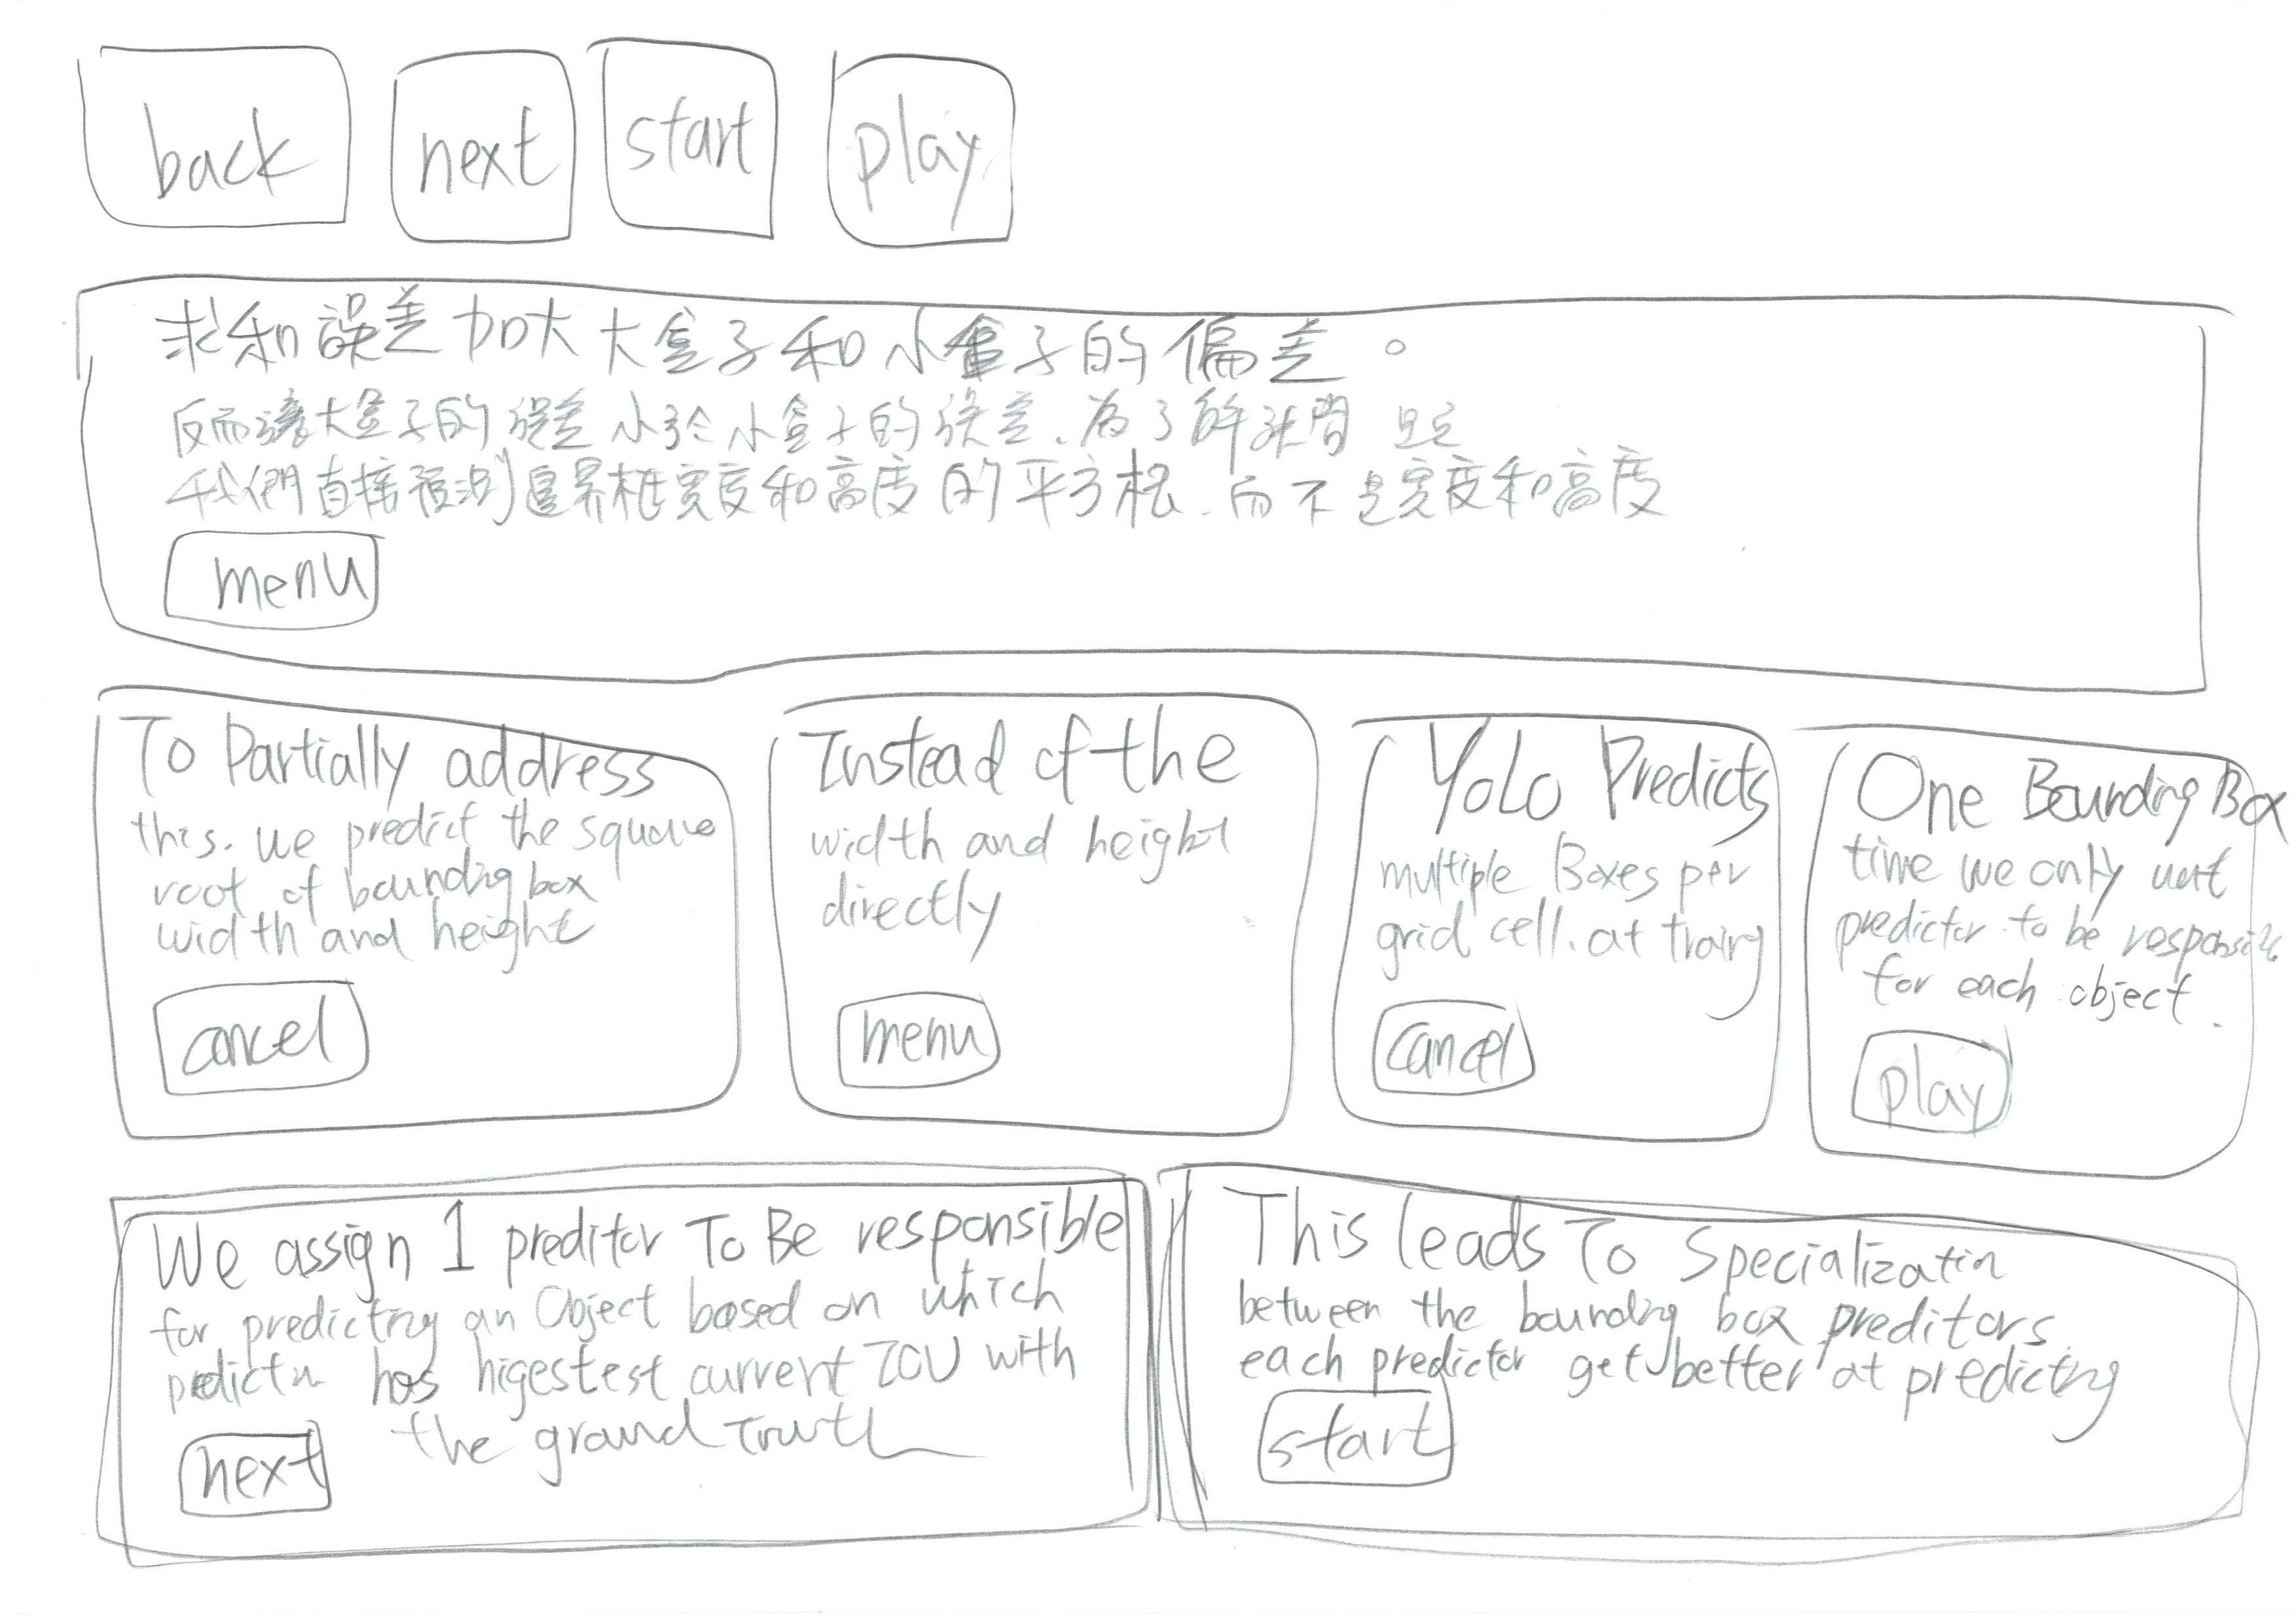 back
next
start
play
求和誤差加大大盒子和小盒子的偏差。
反而讓大盒子的誤差小於小盒子的誤差、為了解
我們直接預測邊界框寬度和高度的平方根、而不是寬度和高度
menu
To Partially address
this. we predict the square
root of bounding box
width and height
cancel
Instead of the
width and height
directly
menu
YoLo Predicts
multiple Boxes per
grid cell. at
cancel
One Bounding Box
time we only
predictor to be responsible
for each object.
play
We assign 1 preditor To Be responsible
for predicting an Object based on which
predictor has higestest current IOU with
the ground Truth
next
This leads To Specialization
between the bounding box preditors.
each predictor get better at predicting
start